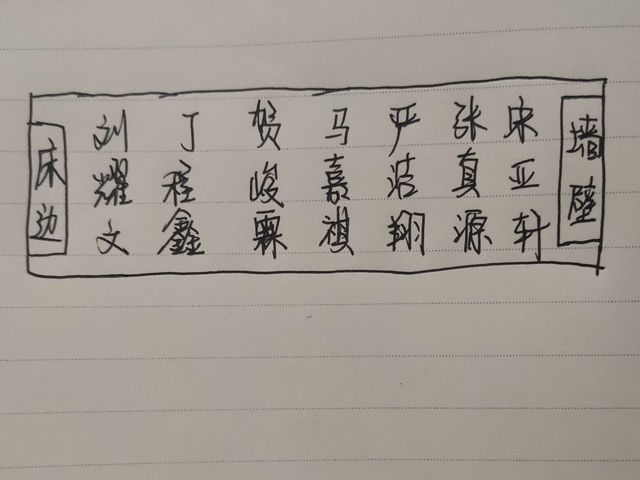 床边
刘耀文
丁程鑫
贺峻霖
马嘉祺
严浩翔
张真源
宋亚轩
墙壁